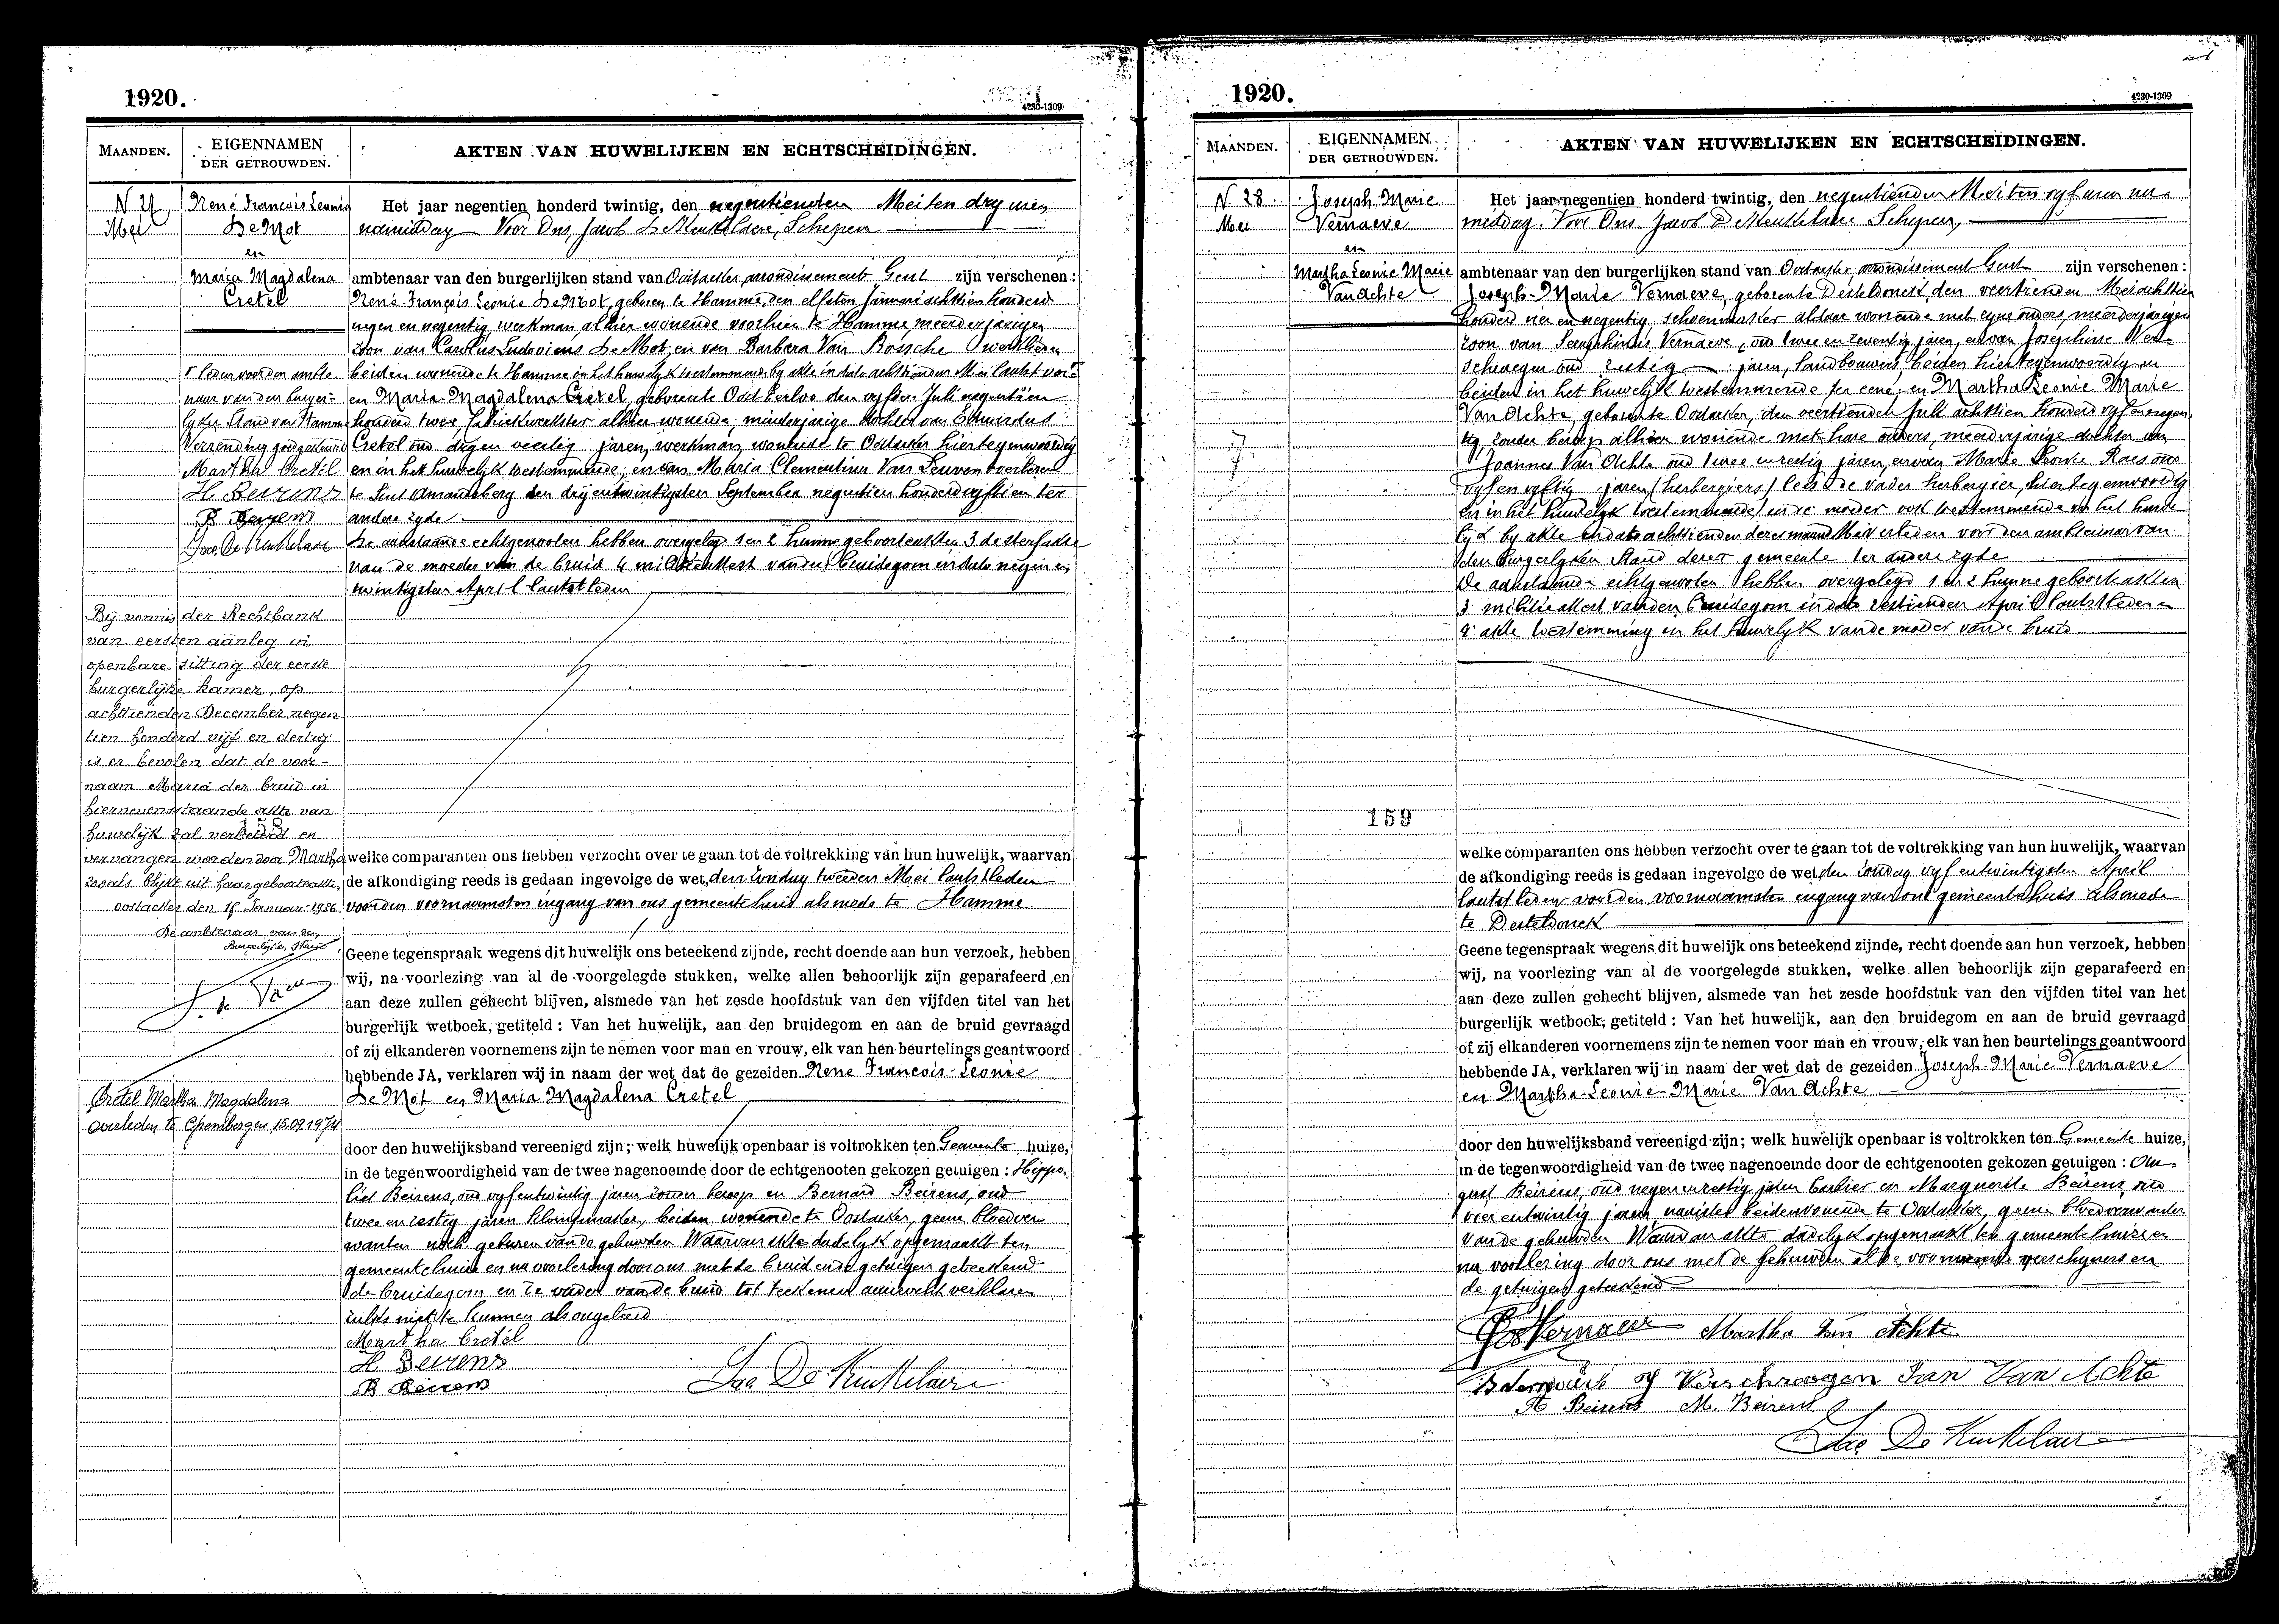 1920.
4230-1309
MAANDEN.
EIGENNAMEN
DER GETROUWDEN.
AKTEN VAN HUWELIJKEN EN ECHTSCHEIDINGEN.
N 27
Mei
René Francois Leonie
De Mot
en
Maria Magdalena
Cretel
Het jaar negentien honderd twintig, den negentienden Mei ten dry uren
namiddag Voor Ons, Jacob De Keukelaere, Schepen
ambtenaar van den burgerlijken stand van Oostacker, arrondissement Gent zijn verschenen :
René-François Leonie De Mot, geboren te Hamme, den elfsten Januari achttien honderd
negen en negentig, werkman alhier wonende voorheen te Hamme meerderjarigen
zoon van Carolus Ludovicus De Mot, en van Barbara Van Bossche
beiden wonende te Hamme en in het huwelijk toestemmende by akte in date achttienden Mei laatst ver
en Maria-Magdalena Cretel, geboren te Oost Eecloo den vyfden Juli negentien
honderd twee, fabriekwerkster alhier wonende, minderjarige dochter van Eduardus
Cretel oud negen veertig jaren, werkman, wonende te Oostacker hier tegenwoordig
en in het huwelyk toestemmende; en van Maria Clementina Van Leuven overleden
te Sint Amandsberg den dryentwintigsten September negentien honderd vyftien ter
andere zyde.
De aanstaande echtgenooten hebben overgelegd 1 en 2 hunne geboorteakten 3 de sterfakte
van de moeder van de bruid 4 militieattest van den bruidegom in date negen en
twintigsten April laatstleden
leden voor den ambte
naar van den burger-
lyken Stand van Hamme
Verzending goedgekeurd
Martha Cretel
H. Beirens
B Beirens
Jac De Keukelaere
Bij vonnis der Rechtbank
van eersten aanleg in
openbare zitting der eerste
burgerlijke kamer, op
achttienden December negen
tien honderd vijf en dertig
is er bevolen dat de voor-
naam Maria der bruid in
hiernevenstaande akte van
huwelijk zal verbeterd en
158
vervangen worden door Martha
zooals blijkt uit haar geboorteakte
Oostacker den 18 Januari 1936
De ambtenaar van den
Burgerlijken Stand
Cretel Martha Magdalena
overleden te 15.09.1974
welke comparanten ons hebben verzocht over te gaan tot de voltrekking van hun huwelijk, waarvan
de afkondiging reeds is gedaan ingevolge de wet, den zondag tweeden Mei laatstleden
voor den voornaamsten ingang van ons gemeentehuis alsmede te Hamme
Geene tegenspraak wegens dit huwelijk ons beteekend zijnde, recht doende aan hun verzoek, hebben
wij, na voorlezing van al de voorgelegde stukken, welke allen behoorlijk zijn geparafeerd en
aan deze zullen gehecht blijven, alsmede van het zesde hoofdstuk van den vijfden titel van het
burgerlijk wetboek, getiteld : Van het huwelijk, aan den bruidegom en aan de bruid gevraagd
of zij elkanderen voornemens zijn te nemen voor man en vrouw, elk van hen beurtelings geantwoord
hebbende JA, verklaren wij in naam der wet dat de gezeiden René Francois-Leonie
De Mot en Maria Magdalena Cretel
door den huwelijksband vereenigd zijn; welk huwelijk openbaar is voltrokken ten Gemeente huize,
in de tegenwoordigheid van de twee nagenoemde door de echtgenooten gekozen getuigen : Hippo-
liet Beirens, oud vyfentwintig jaren zonder beroep en Bernard Beirens, oud
twee en zestig jaren klompmaker, beiden wonende te Oostacker, geene bloedver
wanten noch geburen van de gehuwden Waarvan akte dadelyk opgemaakt ten
gemeentehuize en na voorlezing door ons met de bruid en de getuigen geteekend
de bruidegom en de vader van de bruid tot teekenen aanzocht verklaren
zulks niet te kunnen als ongeleerd
Martha Cretel
H Beirens
B Beirens
Jac De Keukelaere
1920.
4230-1309
MAANDEN.
EIGENNAMEN
DER GETROUWDEN.
AKTEN VAN HUWELIJKEN EN ECHTSCHEIDINGEN.
N 28
Mei
Joseph Marie
Vernaeve
en
Martha Leonie Marie
Van Achte
Het jaar negentien honderd twintig, den negentienden Mei ten vyf uren na
middag. Voor Ons. Jacob De Keukelaere Schepen,
ambtenaar van den burgerlijken stand van Oostacker arrondissement Gent zijn verschenen :
Joseph-Marie Vernaeve, geboren te Desteldonck, den veertienden Mei achttien
honderd en negentig schoenmaker aldaar wonende met zyne ouders, meerderjarigen
zoon van Seraphinus Vernaeve, oud twee en zeventig jaren, en van Josephine Ver
schraegen oud zestig jaren, landbouwers, beiden hier tegenwoordig en
beiden in het huwelijk toestemmende ter eene, en Martha Leonie Marie
Van Achte, geboren te Oostacker, den veertienden Juli achttien honderd vyf en negen
tig, zonder beroep alhier wonende met hare ouders, meerderjarige dochter van
Joannes Van Achte oud twee en zestig jaren, en van Marie Leonie Raes oud
vyf en vyftig jaren (herbergiers) lees de vader herbergier, hier tegenwoordig
en in het huwelyk toestemmende en de moeder ook toestemmende in het huwe
lijk by akte in date achttienden dezer maand Mei verleden voor den ambtenaar van
den burgerlyken Stand dezer gemeente ter andere zyde
De aanstaande echtgenooten hebben overgelegd 1 en 2 hunne geboorteakten
3 militieattest van den bruidegom in date zestienden April laatstleden en
4 akte toestemming in het huwelyk van de moeder van de bruid
159
welke comparanten ons hebben verzocht over te gaan tot de voltrekking van hun huwelijk, waarvan
de afkondiging reeds is gedaan ingevolge de wet, den zondag vyf en twintigsten April
laatstleden voor den voornaamsten ingang van ons gemeentehuis alsmede
te Desteldonck
Geene tegenspraak wegens dit huwelijk ons beteekend zijnde, recht doende aan hun verzoek, hebben
wij, na voorlezing van al de voorgelegde stukken, welke allen behoorlijk zijn geparafeerd en
aan deze zullen gehecht blijven, alsmede van het zesde hoofdstuk van den vijfden titel van het
burgerlijk wetboek, getiteld : Van het huwelijk, aan den bruidegom en aan de bruid gevraagd
of zij elkanderen voornemens zijn te nemen voor man en vrouw, elk van hen beurtelings geantwoord
hebbende JA, verklaren wij in naam der wet dat de gezeiden Joseph-Marie Vernaeve
en Martha-Leonie-Marie Van Achte
door den huwelijksband vereenigd zijn; welk huwelijk openbaar is voltrokken ten Gemeente huize,
in de tegenwoordigheid van de twee nagenoemde door de echtgenooten gekozen getuigen : Au-
gust Beirens, oud negen en zestig jaren barbier en Marguerite Beirens, oud
vier entwintig jaren, naaister beiden wonende te Oostacker, geene bloedverwanten
van de gehuwden Waarvan akte dadelyk opgemaakt ten gemeentehuize en
na voorlezing door ons met de gehuwden al de voornoemde verschyners en
de getuigen geteekend
Jos Vernaeve Martha Van Achte
Verschraegen Jan Van Achte
A Beirens M. Beirens
Jac De Keukelaere